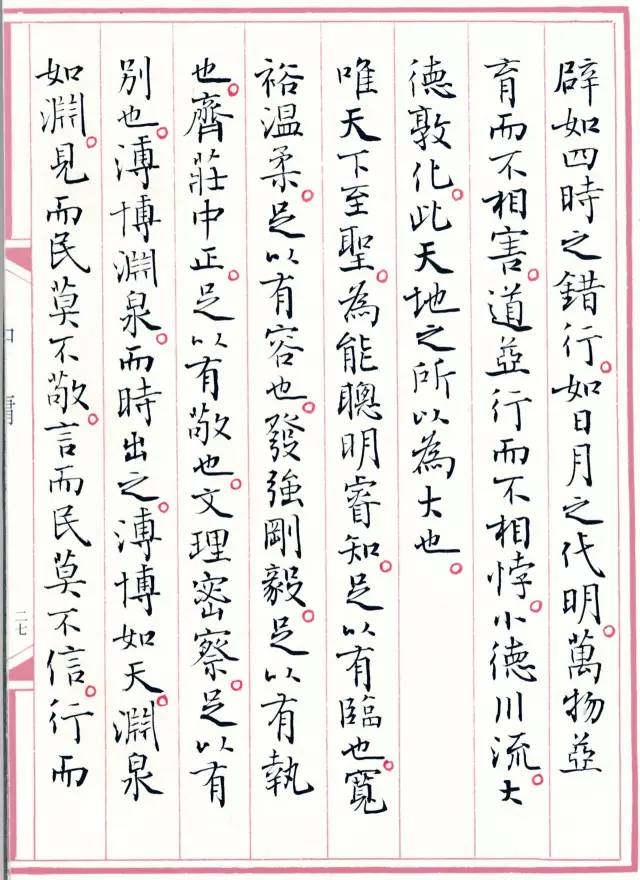 辟如四時之錯行。如日月之代明。萬物並
育而不相害。道並行而不相悖。小德川流。大
德敦化。此天地之所以為大也。
唯天下至聖。為能聰明睿知。足以有臨也。寬
裕溫柔。足以有容也。發強剛毅。足以有執
也。齊莊中正。足以有敬也。文理密察。足以有
別也。溥博淵泉。而時出之。溥博如天。淵泉
如淵。見而民莫不敬。言而民莫不信。行而
中庸
二七